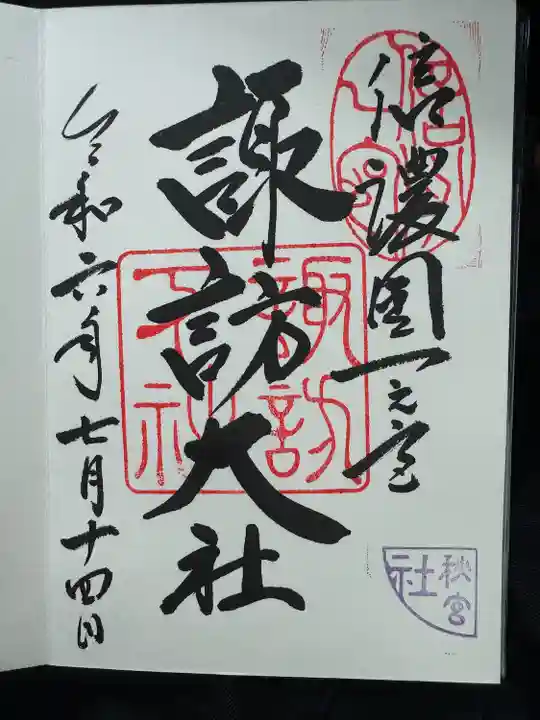 信濃國一之宮
諏訪大社
令和六年七月十四日
諏訪
大社
秋宮
社